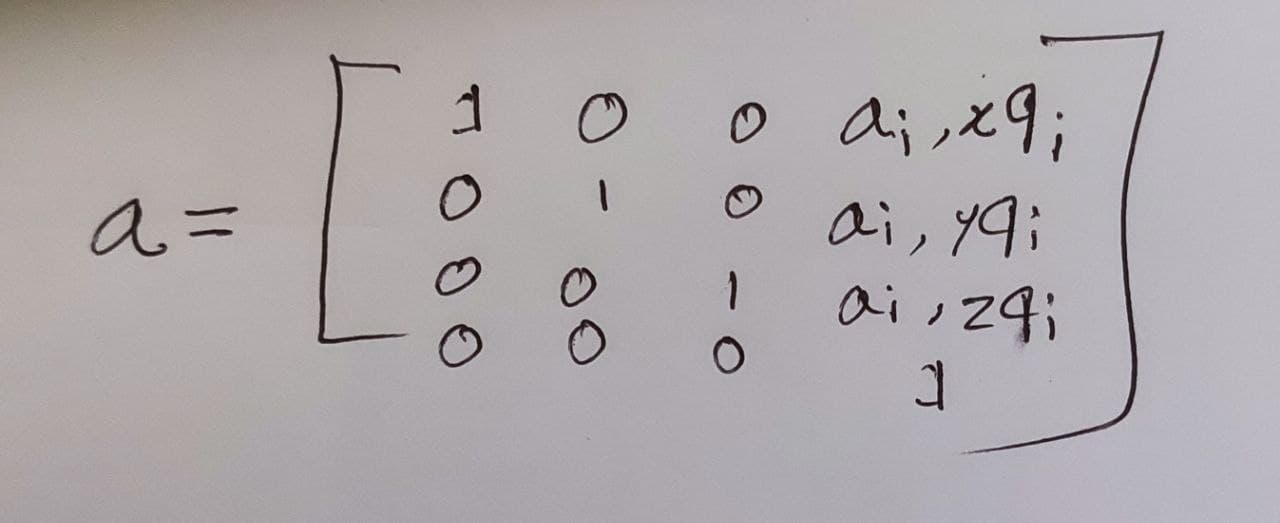 1 0 0 aᵢ,xqᵢ
a = 0 1 0 aᵢ,yqᵢ
0 0 1 aᵢ,zqᵢ
0 0 0 1